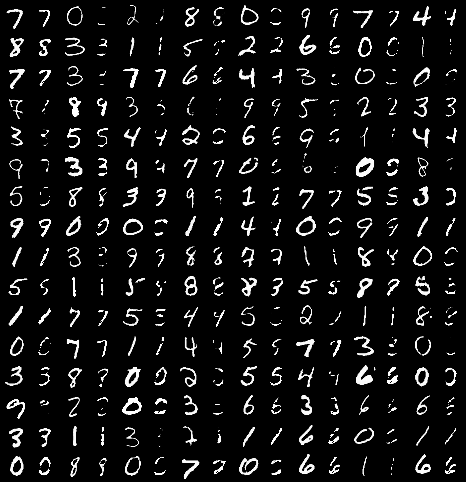 7 7 0 2 8 8 0 0 9 9 7 7 4 4
8 8 3 3 1 1 5 5 2 2 6 6 0 1 1
7 7 3 3 7 7 6 6 4 4 3 0 0
7 8 9 3 6 9 9 5 2 2 3 3
3 5 5 4 4 2 6 6 9 1 4 4
9 3 3 9 7 7 0 6 0 0 8
5 8 8 3 3 9 1 1 7 7 5 5 3
9 9 0 0 0 1 1 4 4 0 9 9 1 1
1 1 3 3 9 9 8 8 7 7 1 1 8 8 0
5 5 1 1 5 8 8 8 3 5 5 8 5
1 1 7 7 5 5 4 4 5 2 1 1 8 8
0 0 7 7 1 1 4 4 5 5 7 7 3 3 0
3 3 8 0 0 2 5 5 4 4 6 6 0 0
9 2 0 0 3 6 6 3 3 6 6 6 6
3 3 1 1 3 2 1 1 6 6 0 1 1
0 0 8 8 0 7 7 0 6 6 1 1 6 6